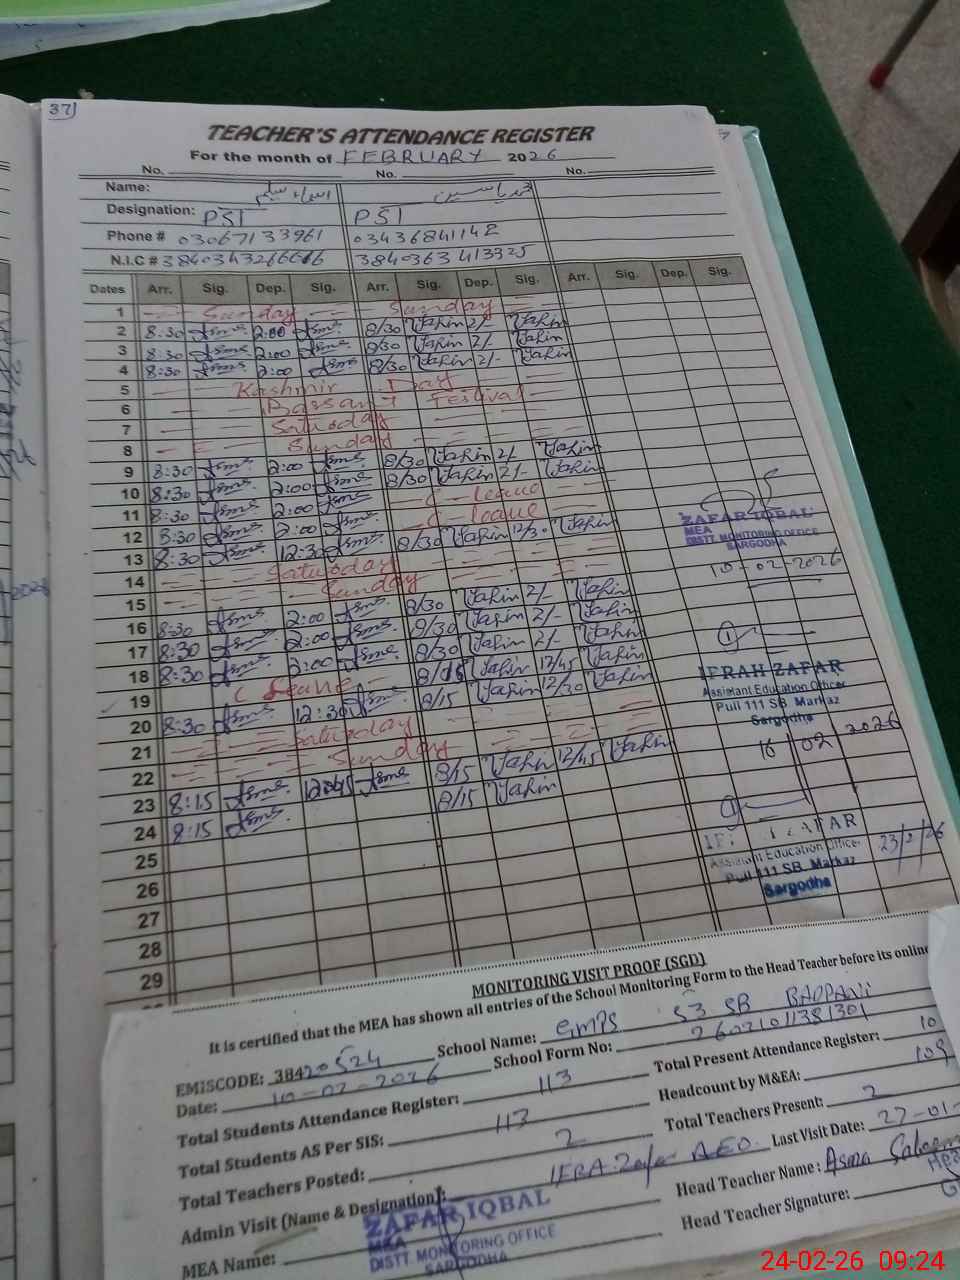 37
TEACHER'S ATTENDANCE REGISTER
For the month of FEBRUARY 2026
No. No. No.
Name: اسماء سلیم
Designation: PST PST
Phone # 03067133961 03436841142
N.I.C # 3840343266666 3840363413325
Dates Arr. Sig. Dep. Sig. Arr. Sig. Dep. Sig. Arr. Sig. Dep. Sig.
1 Sunday Sunday
2 8:30 Asma 2:00 Asma 8/30 Tahir 2/- Tahir
3 8:30 Asma 2:00 Asma 8/30 Tahir 2/- Tahir
4 8:30 Asma 2:00 Asma 8/30 Tahir 2/- Tahir
5 Kashmir Day
6 Bassant Festival
7 Saturday
8 Sunday
9 8:30 Asma 2:00 Asma 8/30 Tahir 2/- Tahir
10 8:30 Asma 2:00 Asma 8/30 Tahir 2/- Tahir
11 8:30 Asma 2:00 Asma C-leave
12 8:30 Asma 2:00 Asma C-leave
13 8:30 Asma 12:30 Asma 8/30 Tahir 12/30 Tahir
14 Saturday
15 Sunday
16 8:30 Asma 2:00 Asma 8/30 Tahir 2/- Tahir
17 8:30 Asma 2:00 Asma 8/30 Tahir 2/- Tahir
18 8:30 Asma 2:00 Asma 8/30 Tahir 2/- Tahir
19 C Leave 8/15 Tahir 12/45 Tahir
20 8:30 Asma 12:30 Asma 8/15 Tahir 12/30 Tahir
21 Saturday
22 Sunday
23 8:15 Asma 12:45 Asma 8/15 Tahir 12/45 Tahir
24 8:15 Asma 8/15 Tahir
25
26
27
28
29
ZAFAR IQBAL
MEA
DISTT. MONITORING OFFICE
SARGODHA
10-02-2026
IFRAH ZAFAR
Assistant Education Officer
Pull 111 SB Markaz
Sargodha
16/02/2026
ZAFAR
Assistant Education Officer
Pull 111 SB Markaz
Sargodha
23/2/26
MONITORING VISIT PROOF (SGD)
It is certified that the MEA has shown all entries of the School Monitoring Form to the Head Teacher before its online
EMISCODE: 38420524 School Name: GMPS 53 SB
Date: 10-02-2026 School Form No: 2602101381301
Total Students Attendance Register: 113 Total Present Attendance Register: 10
Total Students AS Per SIS: 113 Headcount by M&EA: 109
Total Teachers Posted: 2 Total Teachers Present: 2
Admin Visit (Name & Designation): IFRA Zafar AEO. Last Visit Date: 27-01-
MEA Name: Head Teacher Name: Asma Saleem
Head Teacher Signature:
ZAFAR IQBAL
MEA
DISTT. MONITORING OFFICE
SARGODHA
24-02-26 09:24